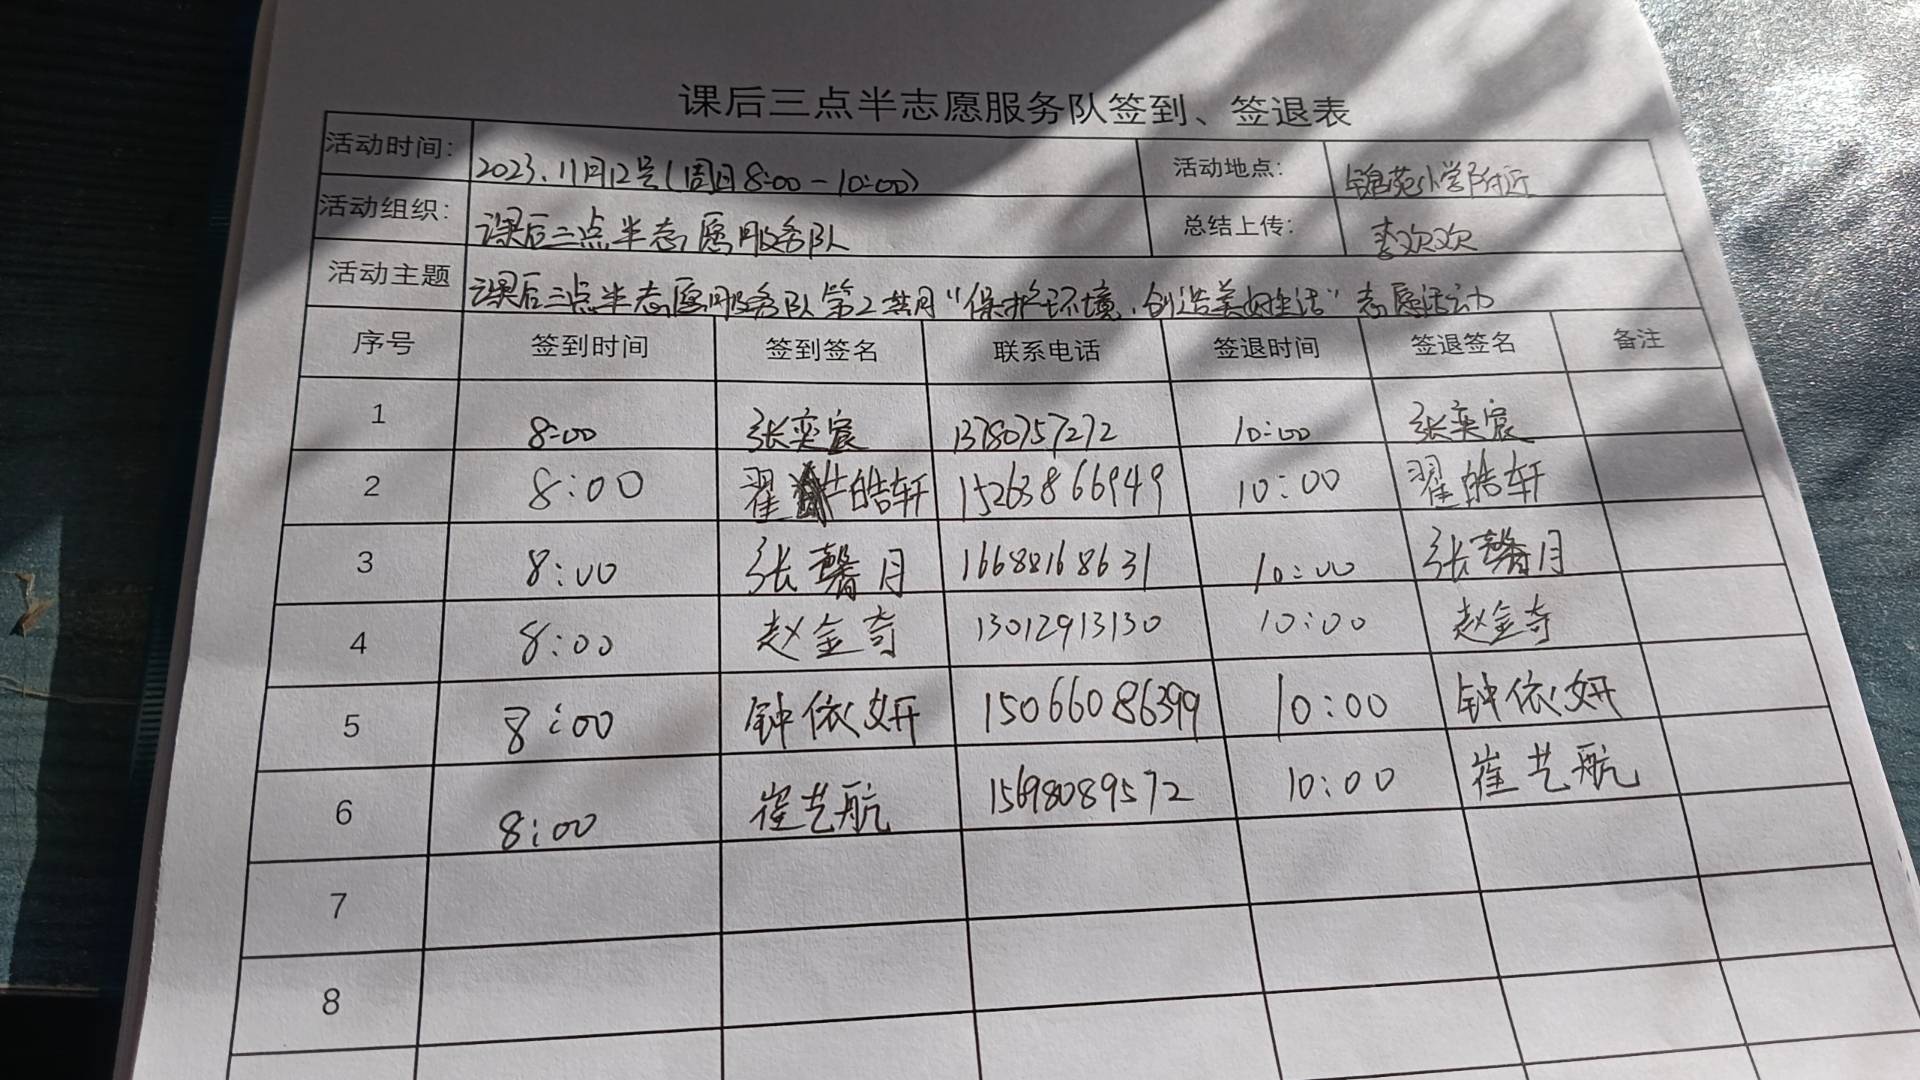 课后三点半志愿服务队签到、签退表
活动时间: 2023.11月12号(周日8:00-10:00) 活动地点: 锦苑小学附近
活动组织: 课后三点半志愿服务队 总结上传: 李欢欢
活动主题 课后三点半志愿服务队第2共同“保护环境,创造美好生活”志愿活动
序号 签到时间 签到签名 联系电话 签退时间 签退签名 备注
1 8:00 张奕宸 13780757272 10:00 张奕宸
2 8:00 翟皓轩 15263866949 10:00 翟皓轩
3 8:00 张馨月 16688168631 10:00 张馨月
4 8:00 赵金奇 13012913130 10:00 赵金奇
5 8:00 钟依妍 15066086399 10:00 钟依妍
6 8:00 崔艺航 15698089572 10:00 崔艺航
7
8